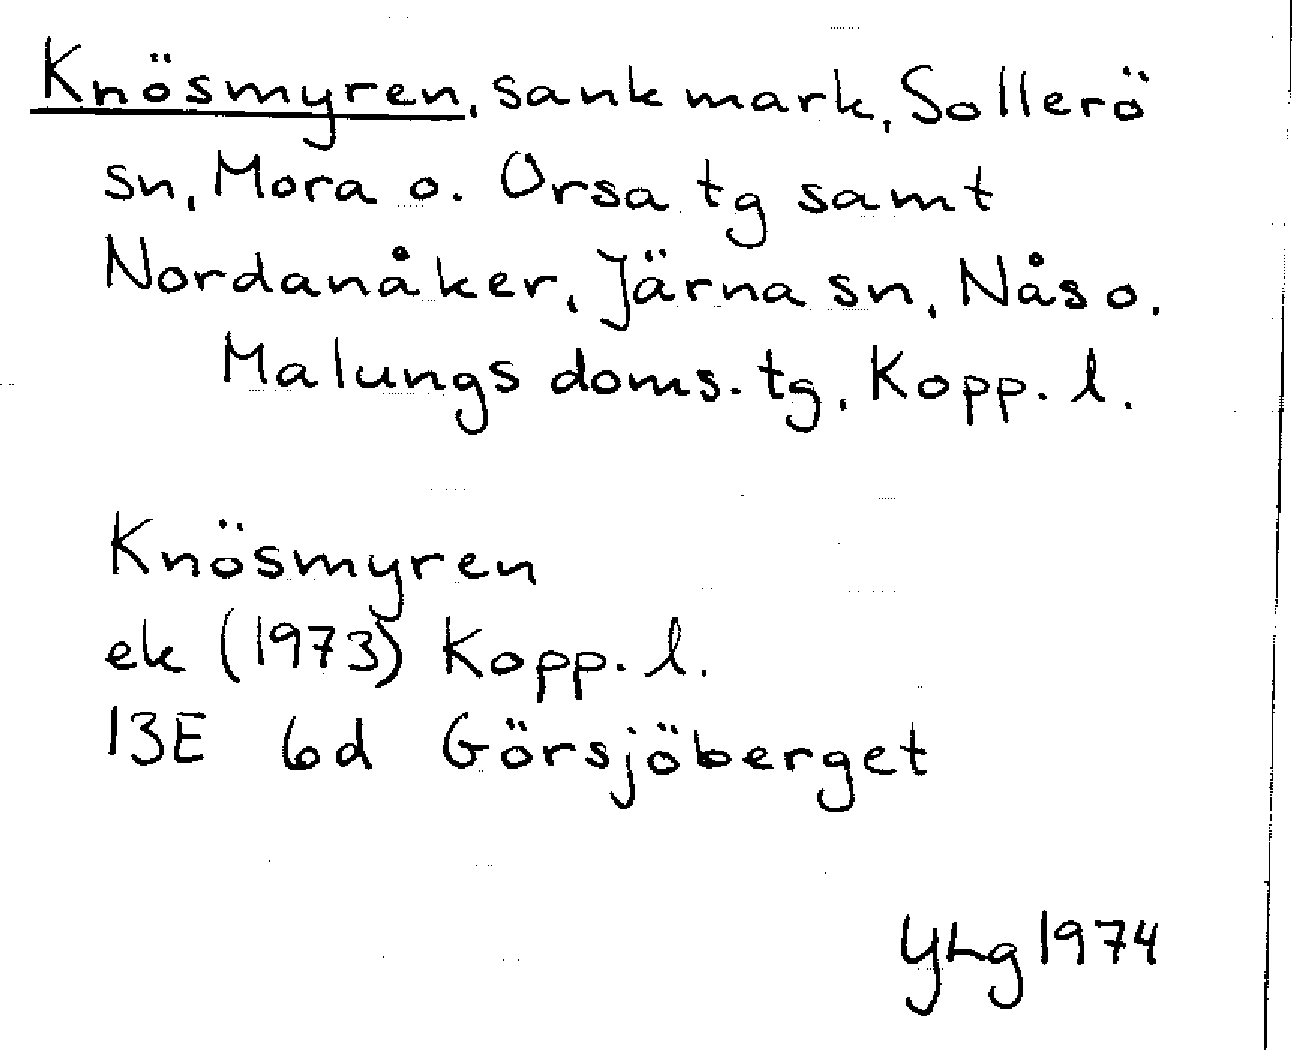 Knösmyren, sankmark, Sollerö
sn, Mora o. Orsa tg samt
Nordanåker, Järna sn, Nås o.
Malungs doms. tg, Kopp. l.
Knösmyren
ek (1973) Kopp. l.
13E 6d Görsjöberget
YLg 1974